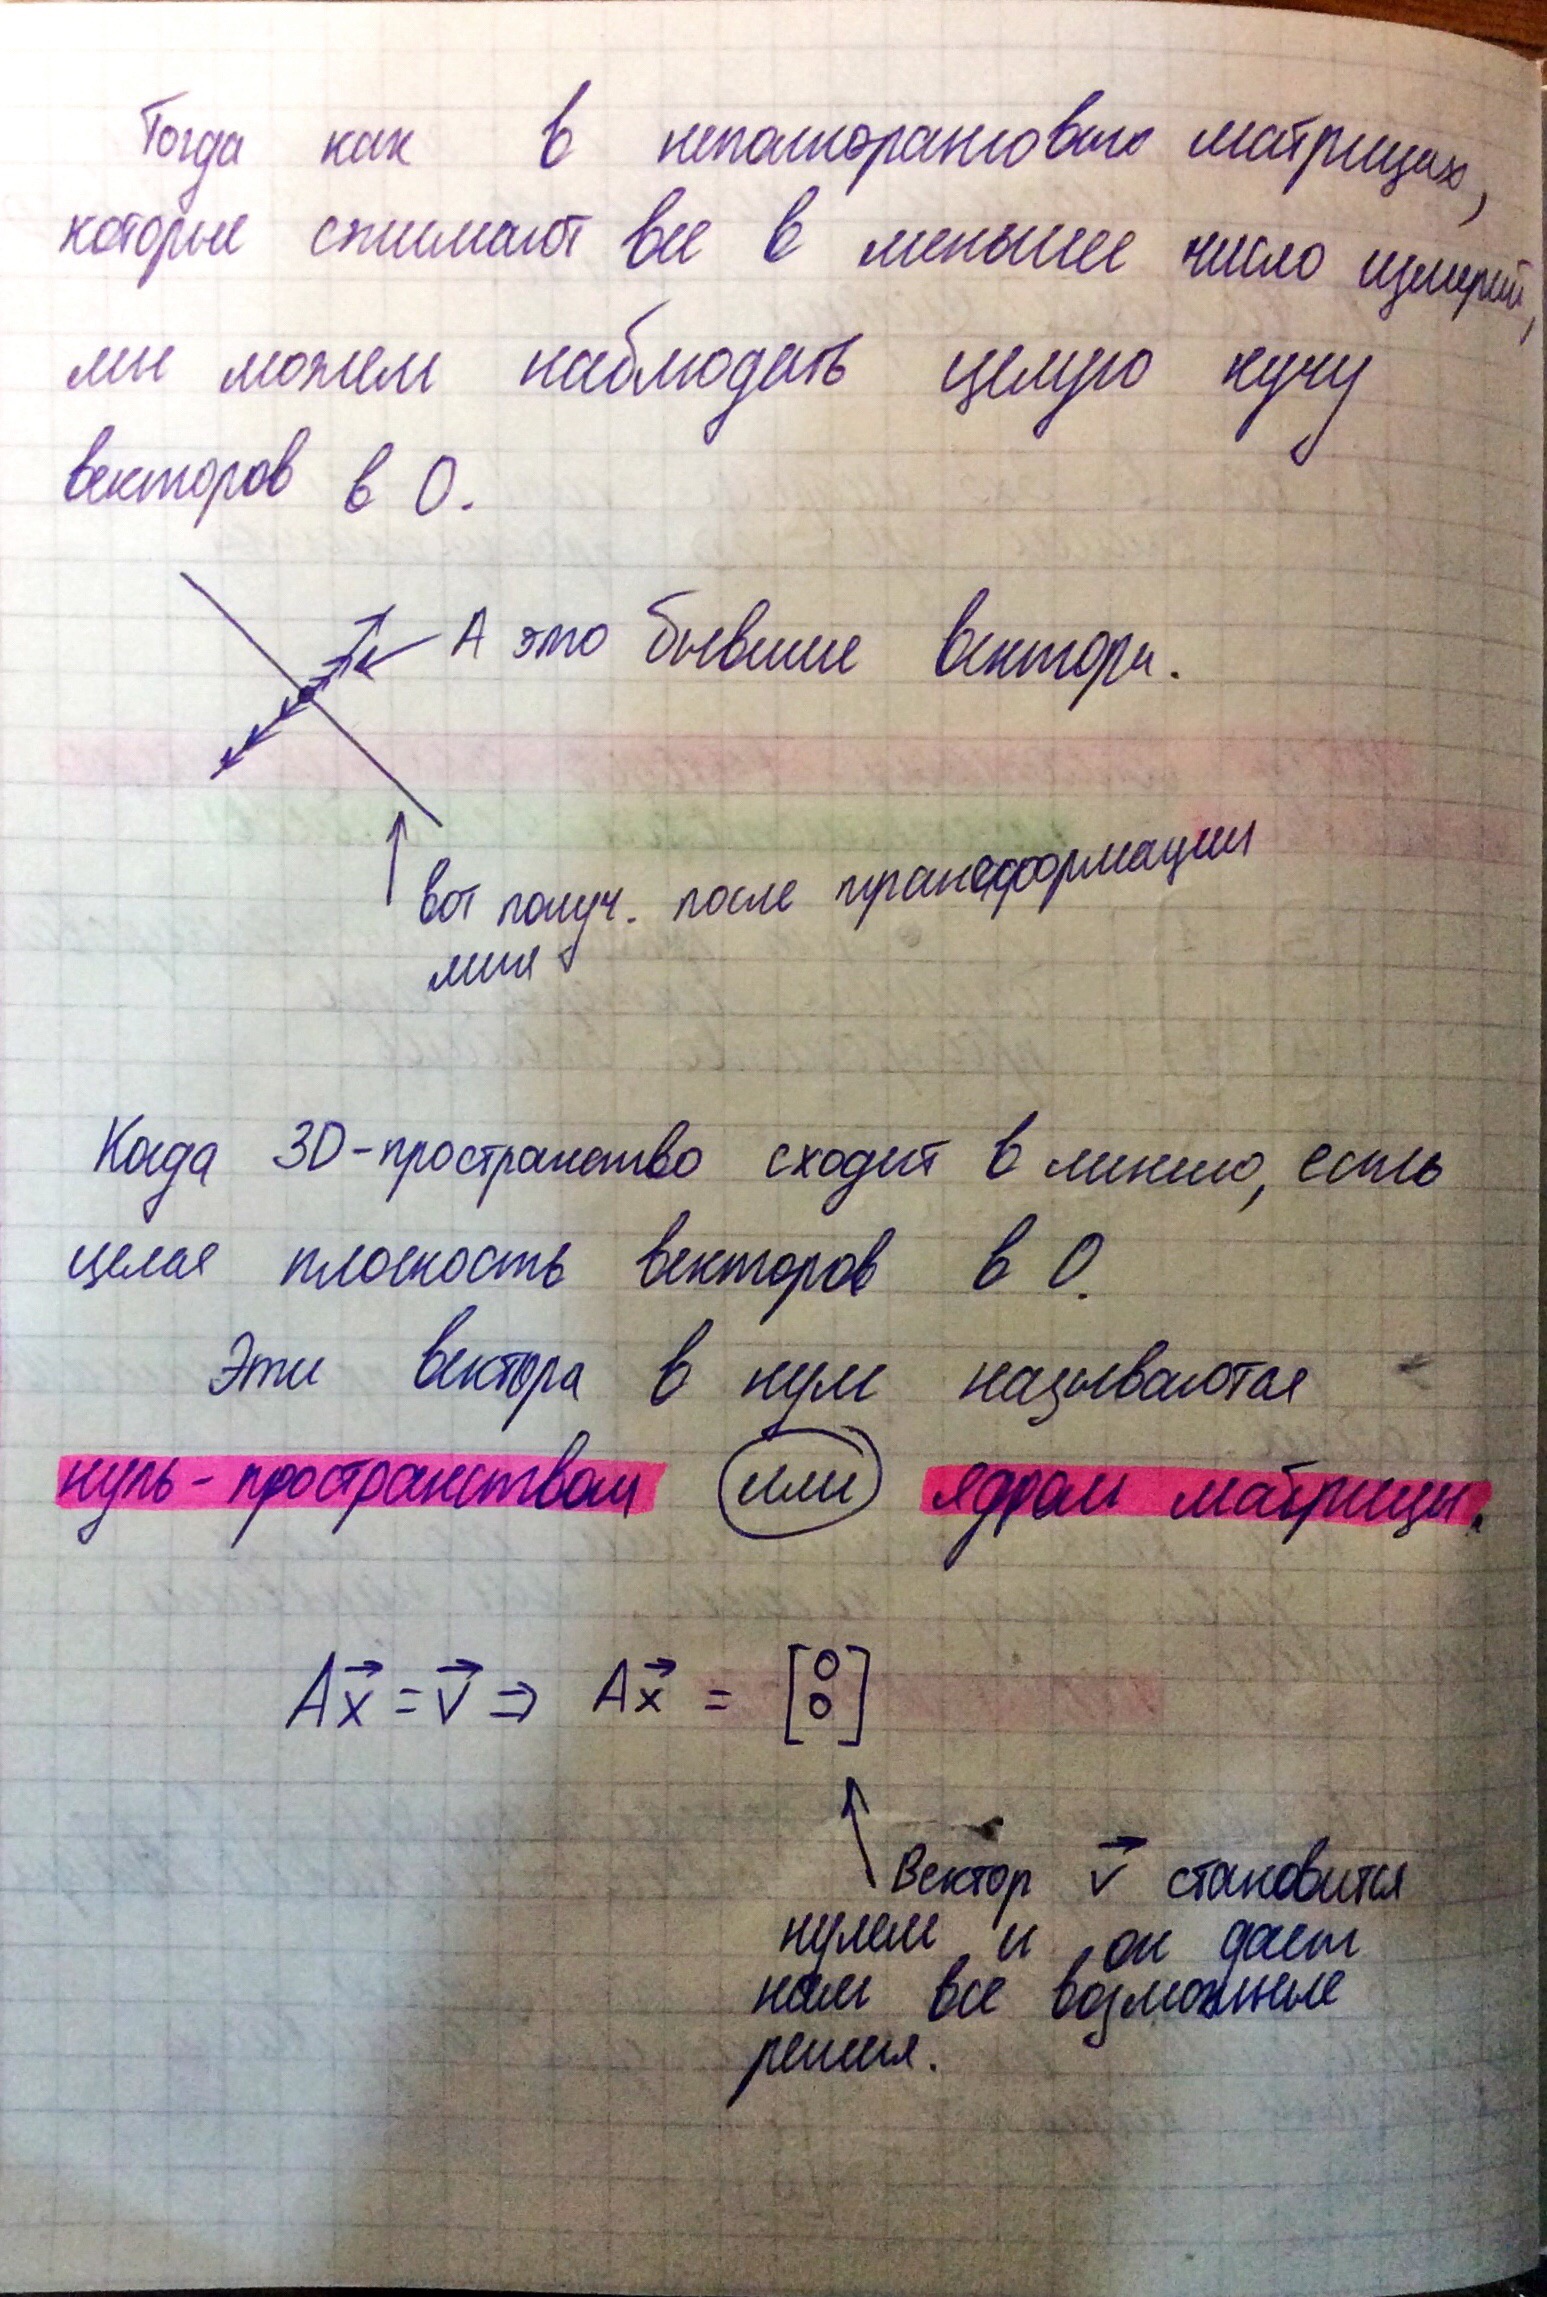 Тогда как в неполноранговых матрицах,
которые сжимают все в меньшее число измерений,
мы можем наблюдать целую кучу
векторов в 0.
А это бывшие вектора.
вот получ. после трансформации
линия
Когда 3D-пространство сходит в линию, есть
целая плоскость векторов в 0.
Эти вектора в нуле называются
нуль-пространством или ядром матрицы.
Ax⃗ = v⃗ ⇒ Ax⃗ = [0 0]
Вектор v⃗ становится
нулем и он дает
нам все возможные
решения.